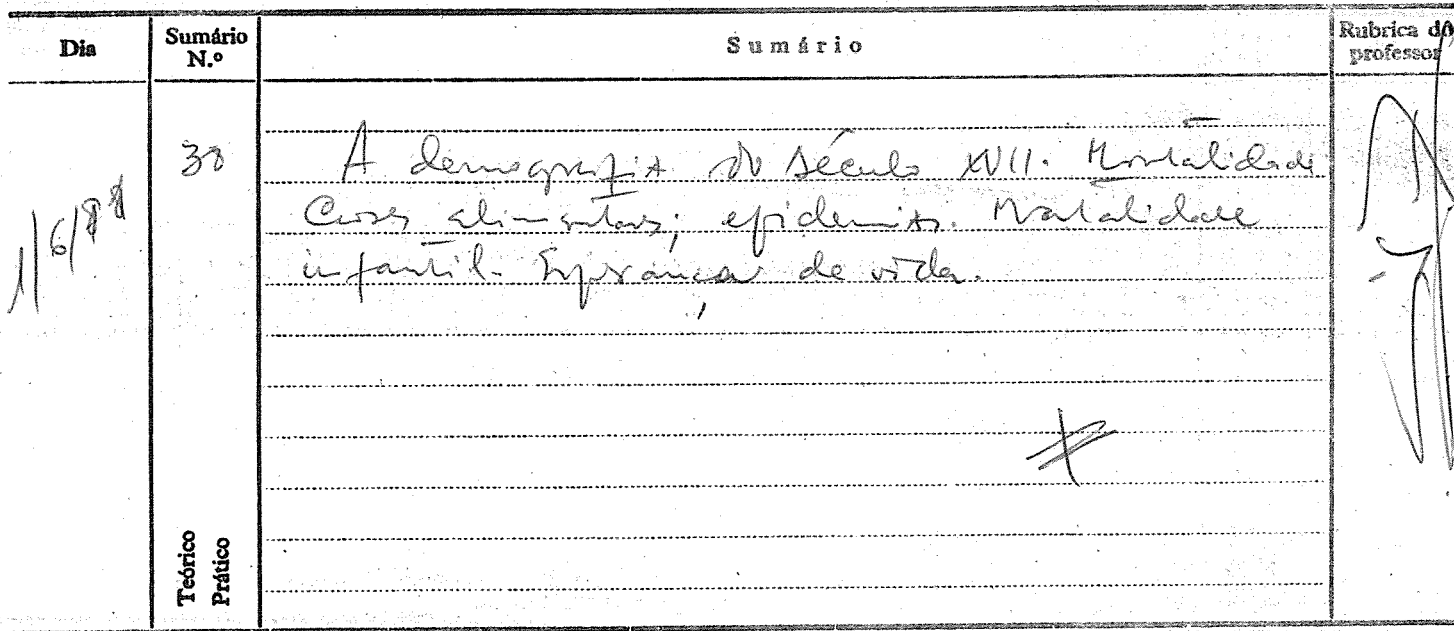 Dia Sumário N.º Sumário Rubrica do professor
1/6/88 38 A demografia do século XVII. Mortalidade
Crises alimentares; epidemias. Natalidade
infantil. Esperança de vida.
Teórico
Prático